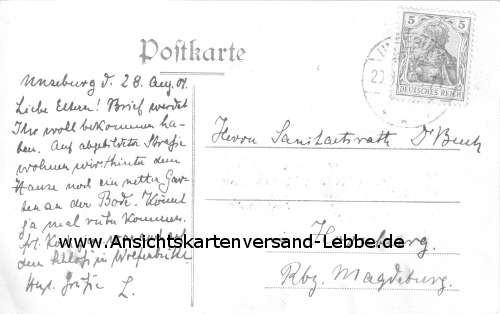 Postkarte
5 5
DEUTSCHES REICH
Unseburg d. 28. Aug. 07.
Liebe Eltern! Brief werdet
Ihr wohl bekommen ha-
ben. Auf abgebildeter Straße
wohnen wir, hinter dem
Hause noch ein netter Gar-
ten an der Bode. Könnt
ja mal rüber kommen.
Frl.
dem in Wolfenbüttel
Herzl. Grüße L.
Herrn Sanitätsrath Dr
Rbz. Magdeburg.
www.Ansichtskartenversand-Lebbe.de